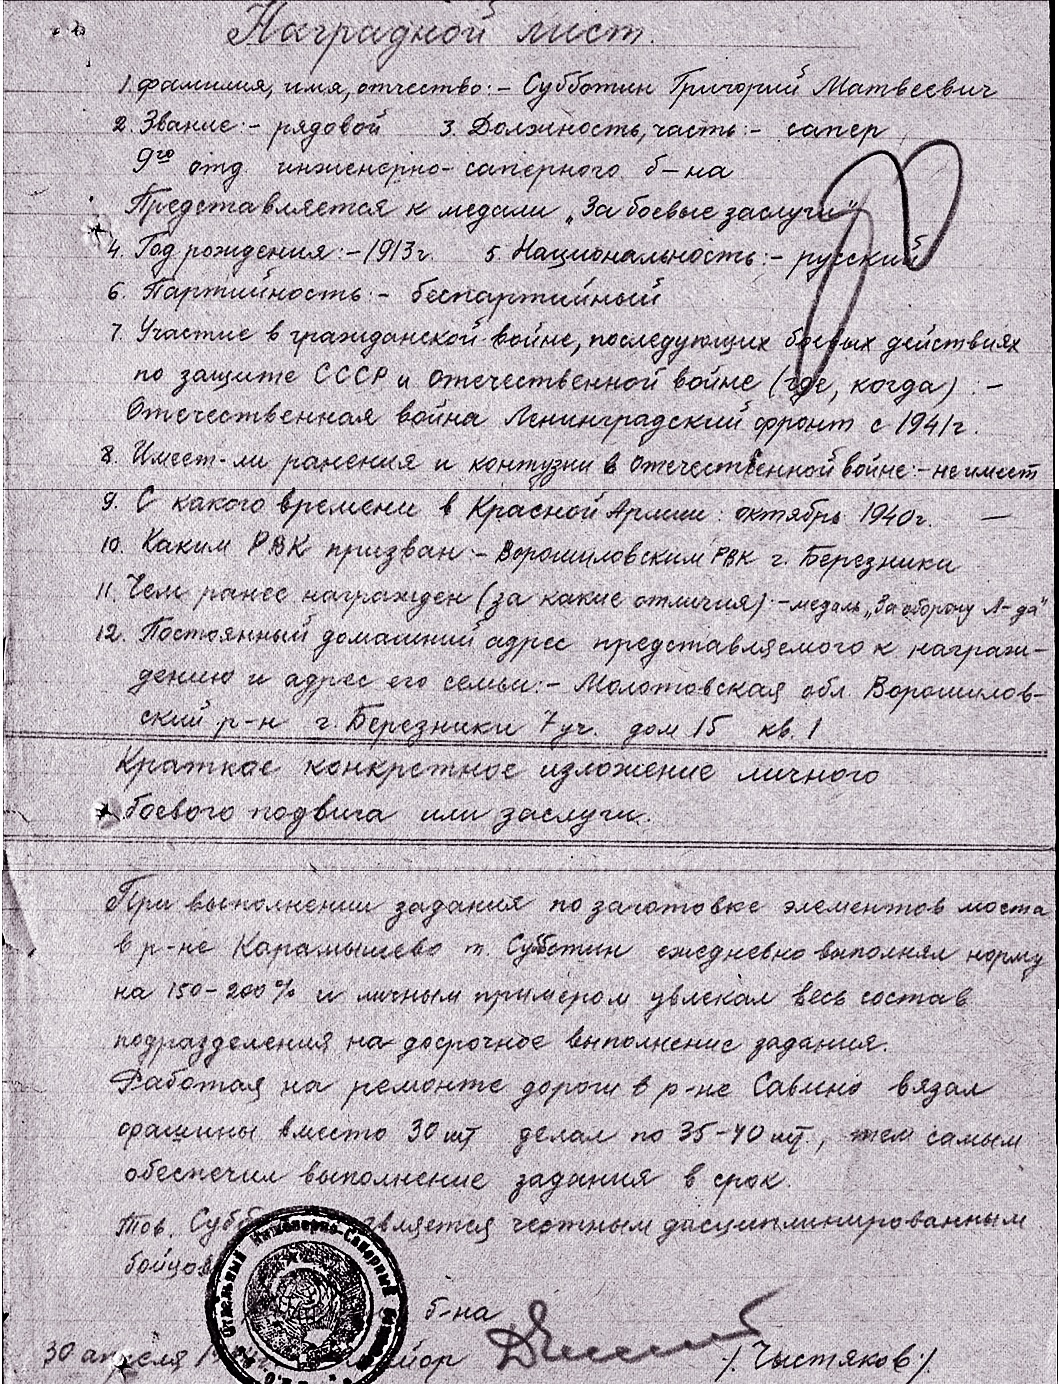 Наградной лист.
1. Фамилия, имя, отчество:- Субботин Григорий Матвеевич
2. Звание:- рядовой 3. Должность, часть:- сапер
9го отд. инженерно-саперного б-на
Представляется к медали „За боевые заслуги"
4. Год рождения:-1913г. 5. Национальность:- русский
6. Партийность:- беспартийный
7. Участие в гражданской войне, последующих боевых действиях
по защите СССР и отечественной войне (где, когда) :-
Отечественная война Ленинградский фронт с 1941г.
8. Имеет-ли ранения и контузии в отечественной войне:- не имеет
9. С какого времени в Красной Армии: октябрь 1940г. —
10. Каким РВК призван:- Ворошиловским РВК г. Березники
11. Чем ранее награжден (за какие отличия):-медаль „За оборону Л-да"
12. Постоянный домашний адрес представляемого к награж-
дению и адрес его семьи:- Молотовская обл. Ворошилов-
ский р-н г. Березники 7 уч. дом 15 кв. 1
Краткое конкретное изложение личного
боевого подвига или заслуги.
При выполнении задания по заготовке элементов моста
в р-не Карамышево т. Субботин ежедневно выполнял норму
на 150-200% и личным примером увлекал весь состав
подразделения на досрочное выполнение задания.
Работая на ремонте дороги в р-не Савино вязал
фашины вместо 30 шт делал по 35-40 шт., тем самым
обеспечил выполнение задания в срок.
Тов. является честным дисциплинированным
бойцом
Отдельный Инженерно-Саперный
б-на
30 апреля /Чистяков/